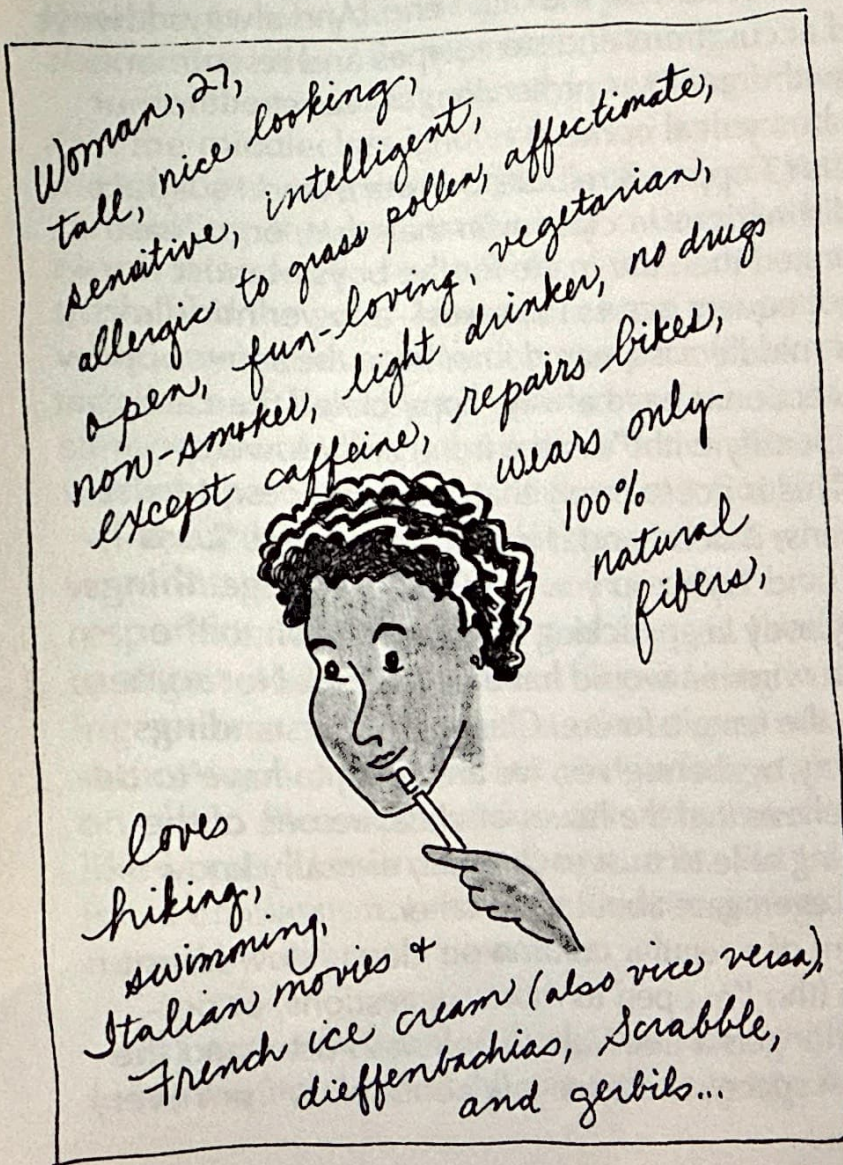 Woman, 27,
tall, nice looking,
sensitive, intelligent,
allergic to grass pollen, affectimate,
open, fun-loving, vegetarian,
non-smoker, light drinker, no drugs
except caffeine, repairs bikes,
wears only
100%
natural
fibers,
loves
hiking,
swimming,
Italian movies +
French ice cream (also vice versa),
dieffenbachias, Scrabble,
and gerbils...